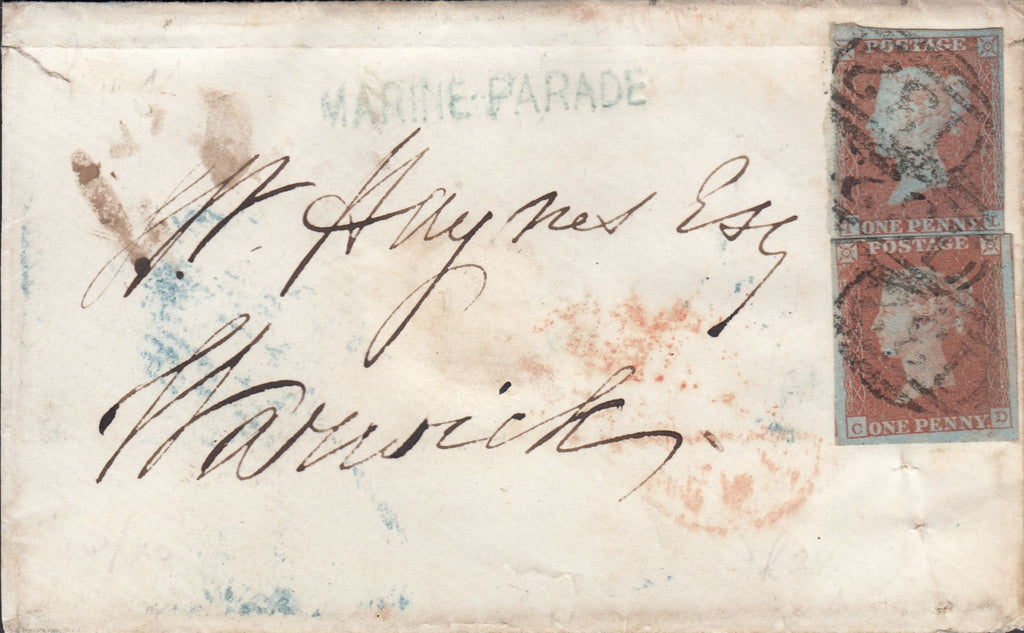 MARINE·PARADE
W. Haynes Esq
Warwick
POSTAGE
ONE PENNY
POSTAGE
C ONE PENNY D